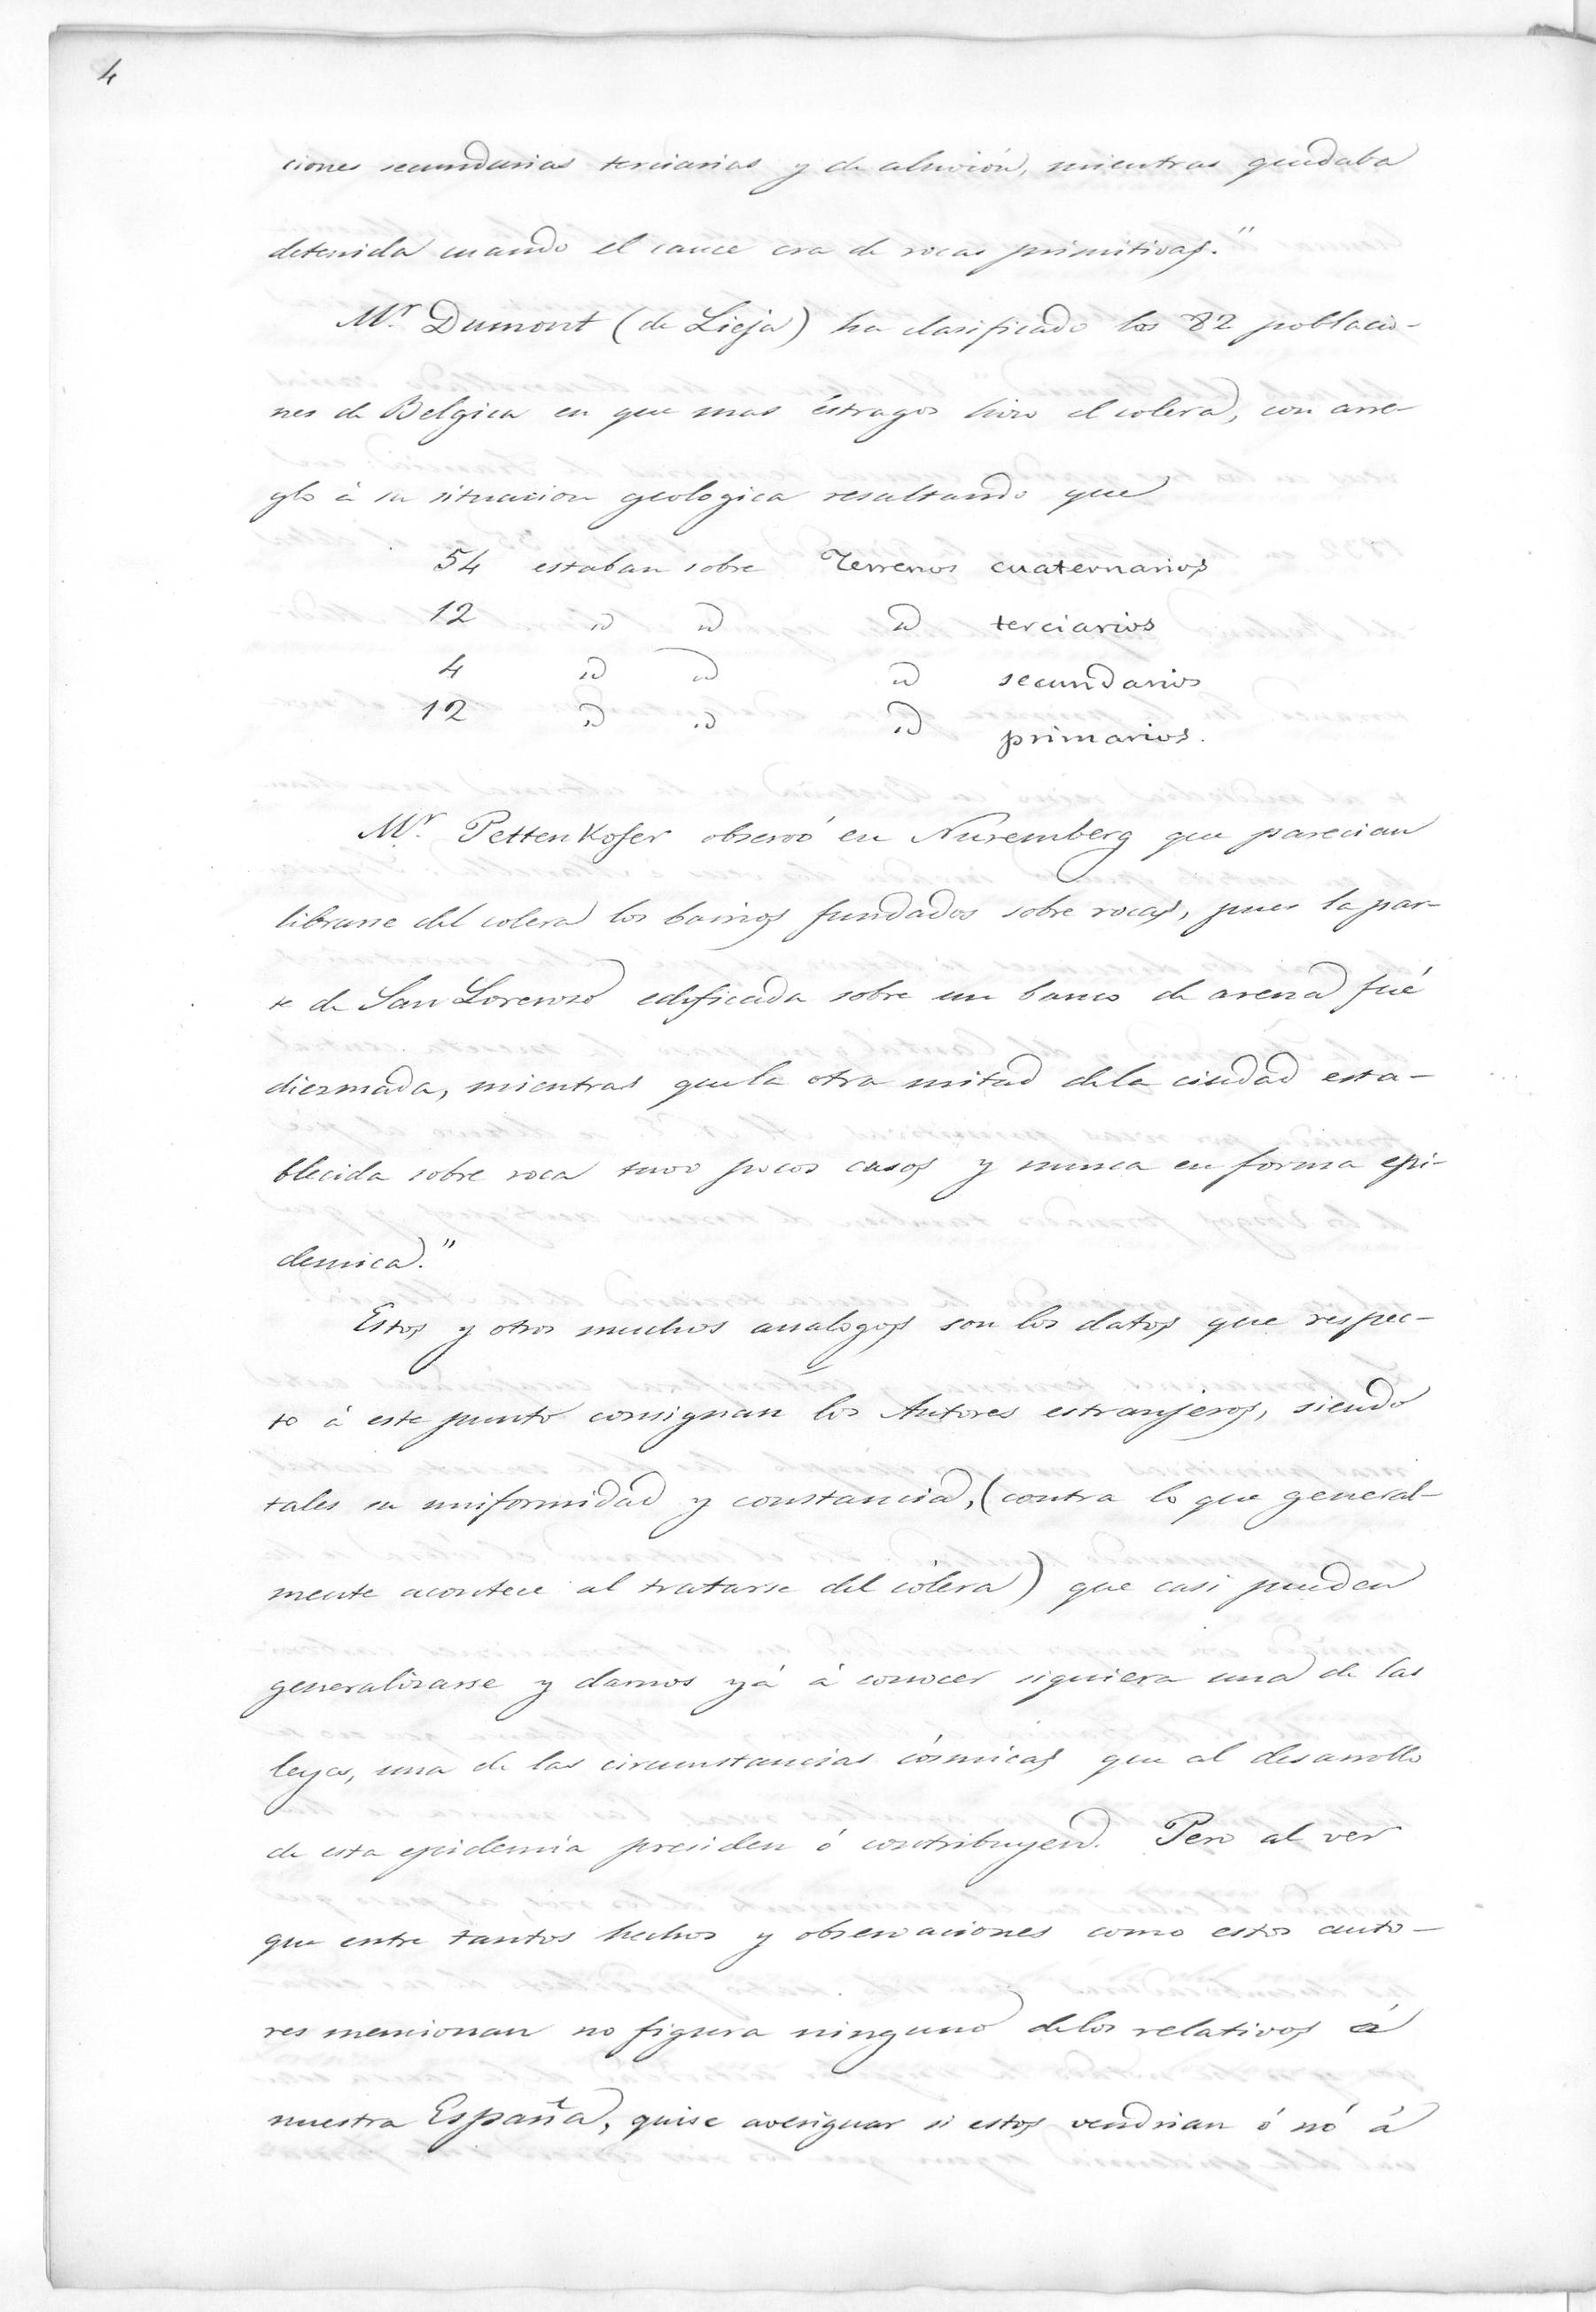 4
ciones secundarias terciarias y de aluvión, mientras quedaba
detenida cuando el cauce era de rocas primitivas."
Mr. Dumont (de Lieja) ha clasificado los 82 poblacio-
nes de Belgica en que mas éstragos hizo el colera, con arre-
glo á su situacion geologica resultando que
54 estaban sobre Terrenos cuaternarios
12 id id id terciarios
4 id id id secundarios
12 id id id primarios.
Mr. Pettenkofer observó en Nüremberg que parecian
librarse del colera los barrios fundados sobre rocas, pues la par-
te de San Lorenzo edificada sobre un banco de arena fué
diezmada, mientras que la otra mitad dela ciudad esta-
blecida sobre roca tuvo pocos casos y nunca en forma epi-
demica."
Estos y otros muchos analogos son los datos que respec-
to á este punto consignan los Autores estranjeros, siendo
tales su uniformidad y constancia, (contra lo que general-
mente acontece al tratarse del cólera) que casi pueden
generalizarse y darnos yá á conocer siquiera una de las
leyes, una de las circumstancias cósmicas que al desarrollo
de esta epidemia presiden ó contribuyen. Pero al ver
que entre tantos hechos y observaciones como estos auto-
res mencionan no figura ninguno delos relativos á
nuestra España, quise averiguar si estos vendrian ó nó á